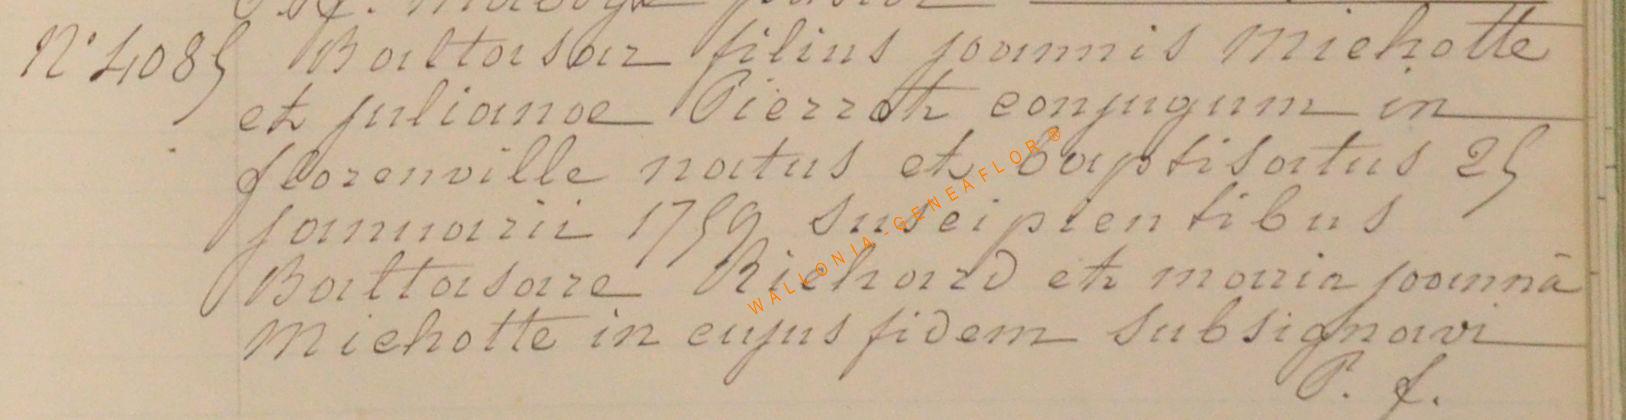 N° 4085 Baltasar filius joannis Michotte
et julianae Pierrot conjugum in
florenville natus et baptisatus 25
januarii 1759 suscipientibus
Baltasare Richard et maria joannâ
Michotte in cujus fidem subsignavi
P. f.
WALLONIA-GENEAFLOR®